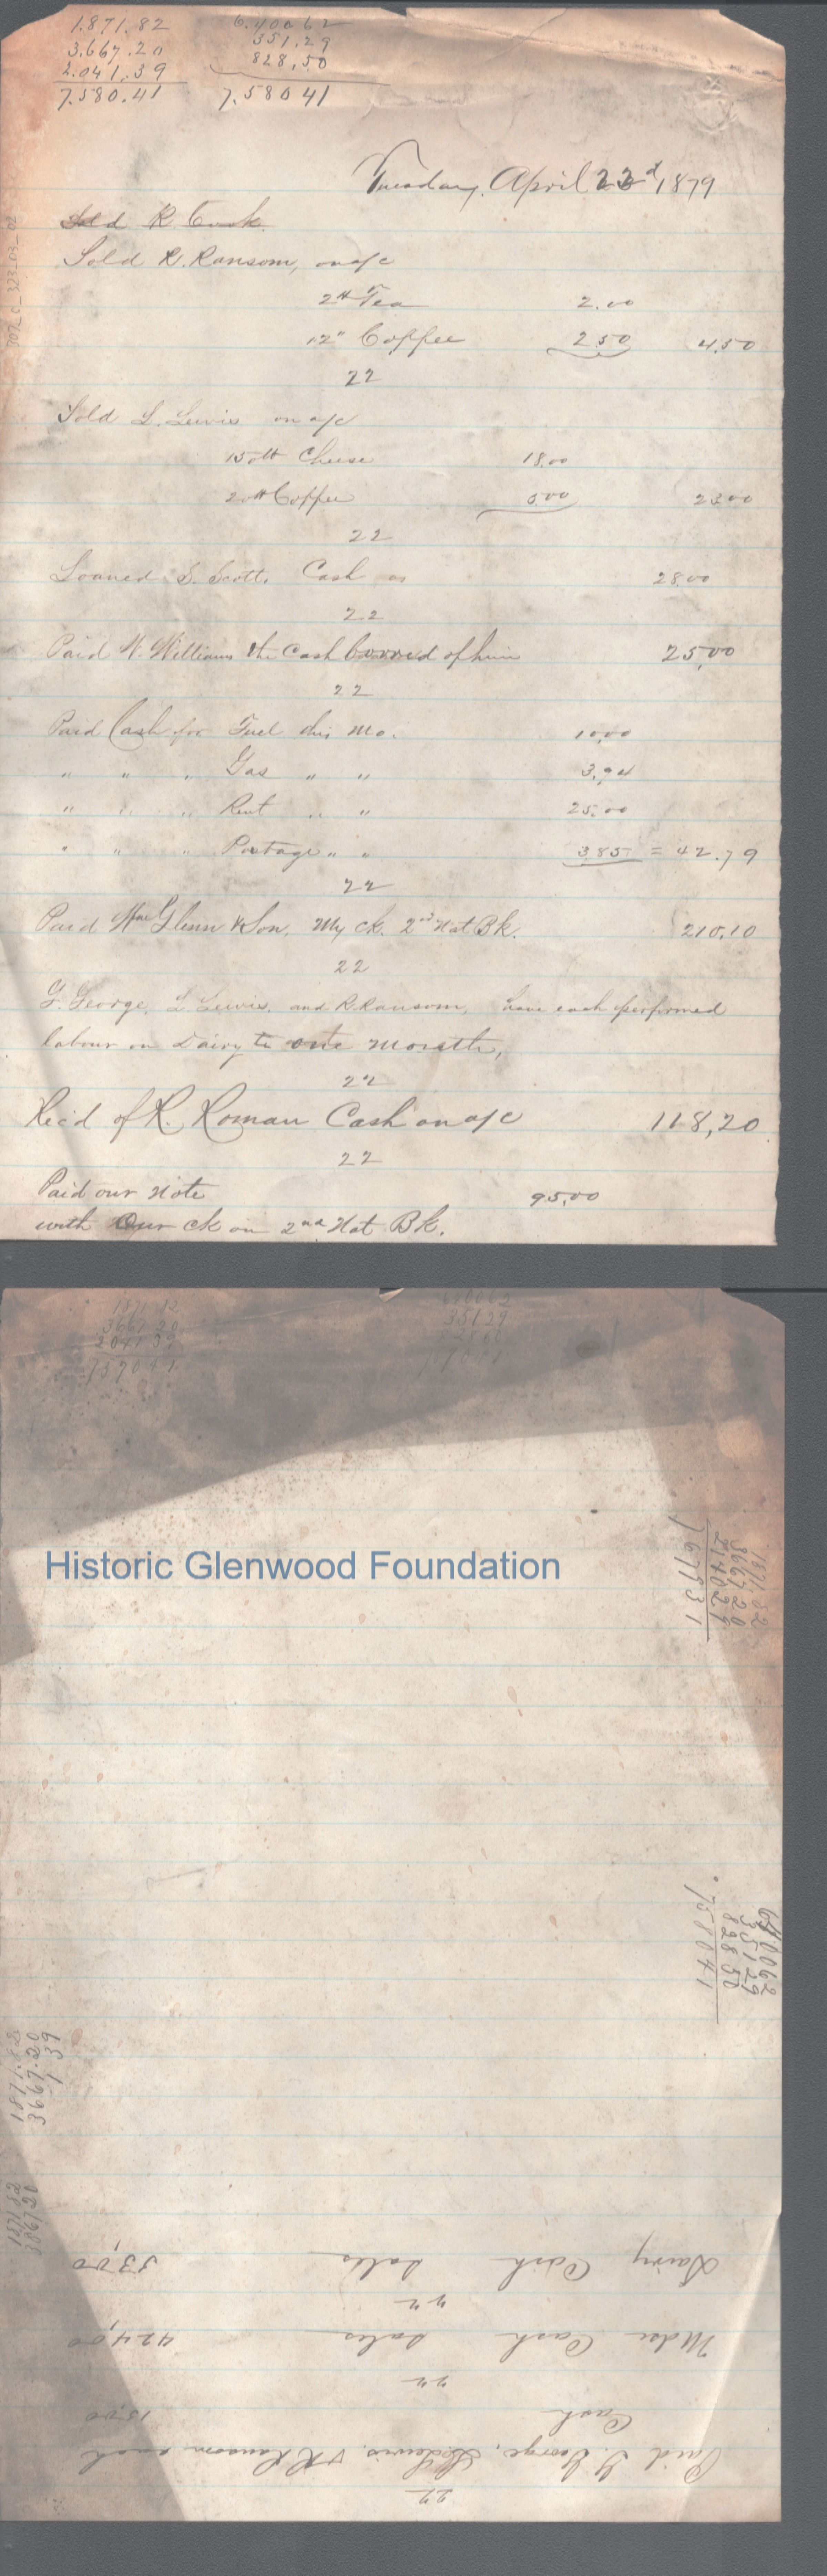 1.871.82
3.667.20
2.041.39
7.580.41
6.400.62
351.29
828.50
7.580 41
Tuesday, April 22d, 1879
Sold R Cook
Sold R. Ransom, on a/c
2 tt Tea 2.00
12 " Coffee 2.50 4.50
22
Sold L. Lewis on a/c
150 tt Cheese 18.00
20 tt Coffee 5.00 23.00
22
Loaned S. Scott. Cash 28.00
22
Paid W. Williams the Cash borrowed of him 25.00
22
Paid Cash for Fuel this Mo. 10.00
" " " Gas " " 3.94
" " " Rent " " 25.00
" " " Postage " " 3.85 = 42.79
22
Paid Wm Glenn & Son. My ck. 2nd Nat Bk. 210.10
22
G. George, L. Lewis, and R. Ransom, have each performed
labour on Dairy to one month,
22
Rec'd of R. Roman Cash on a/c 118,20
22
Paid our Note 95,00
with Our ck on 2nd Nat Bk.
1871 82
3667 20
2041 39
758041
640062
35129
Historic Glenwood Foundation
1871 82
3667 20
2140 29
767931
640062
35129
82850
758041
1871.82
3667.20
1 39
187182
386720
22
Paid G. George, L. Lewis, & R Ransom each
Cash 15,00
22
Mdse Cash Sales 424,00
22
Dairy Cash Sales 53,00